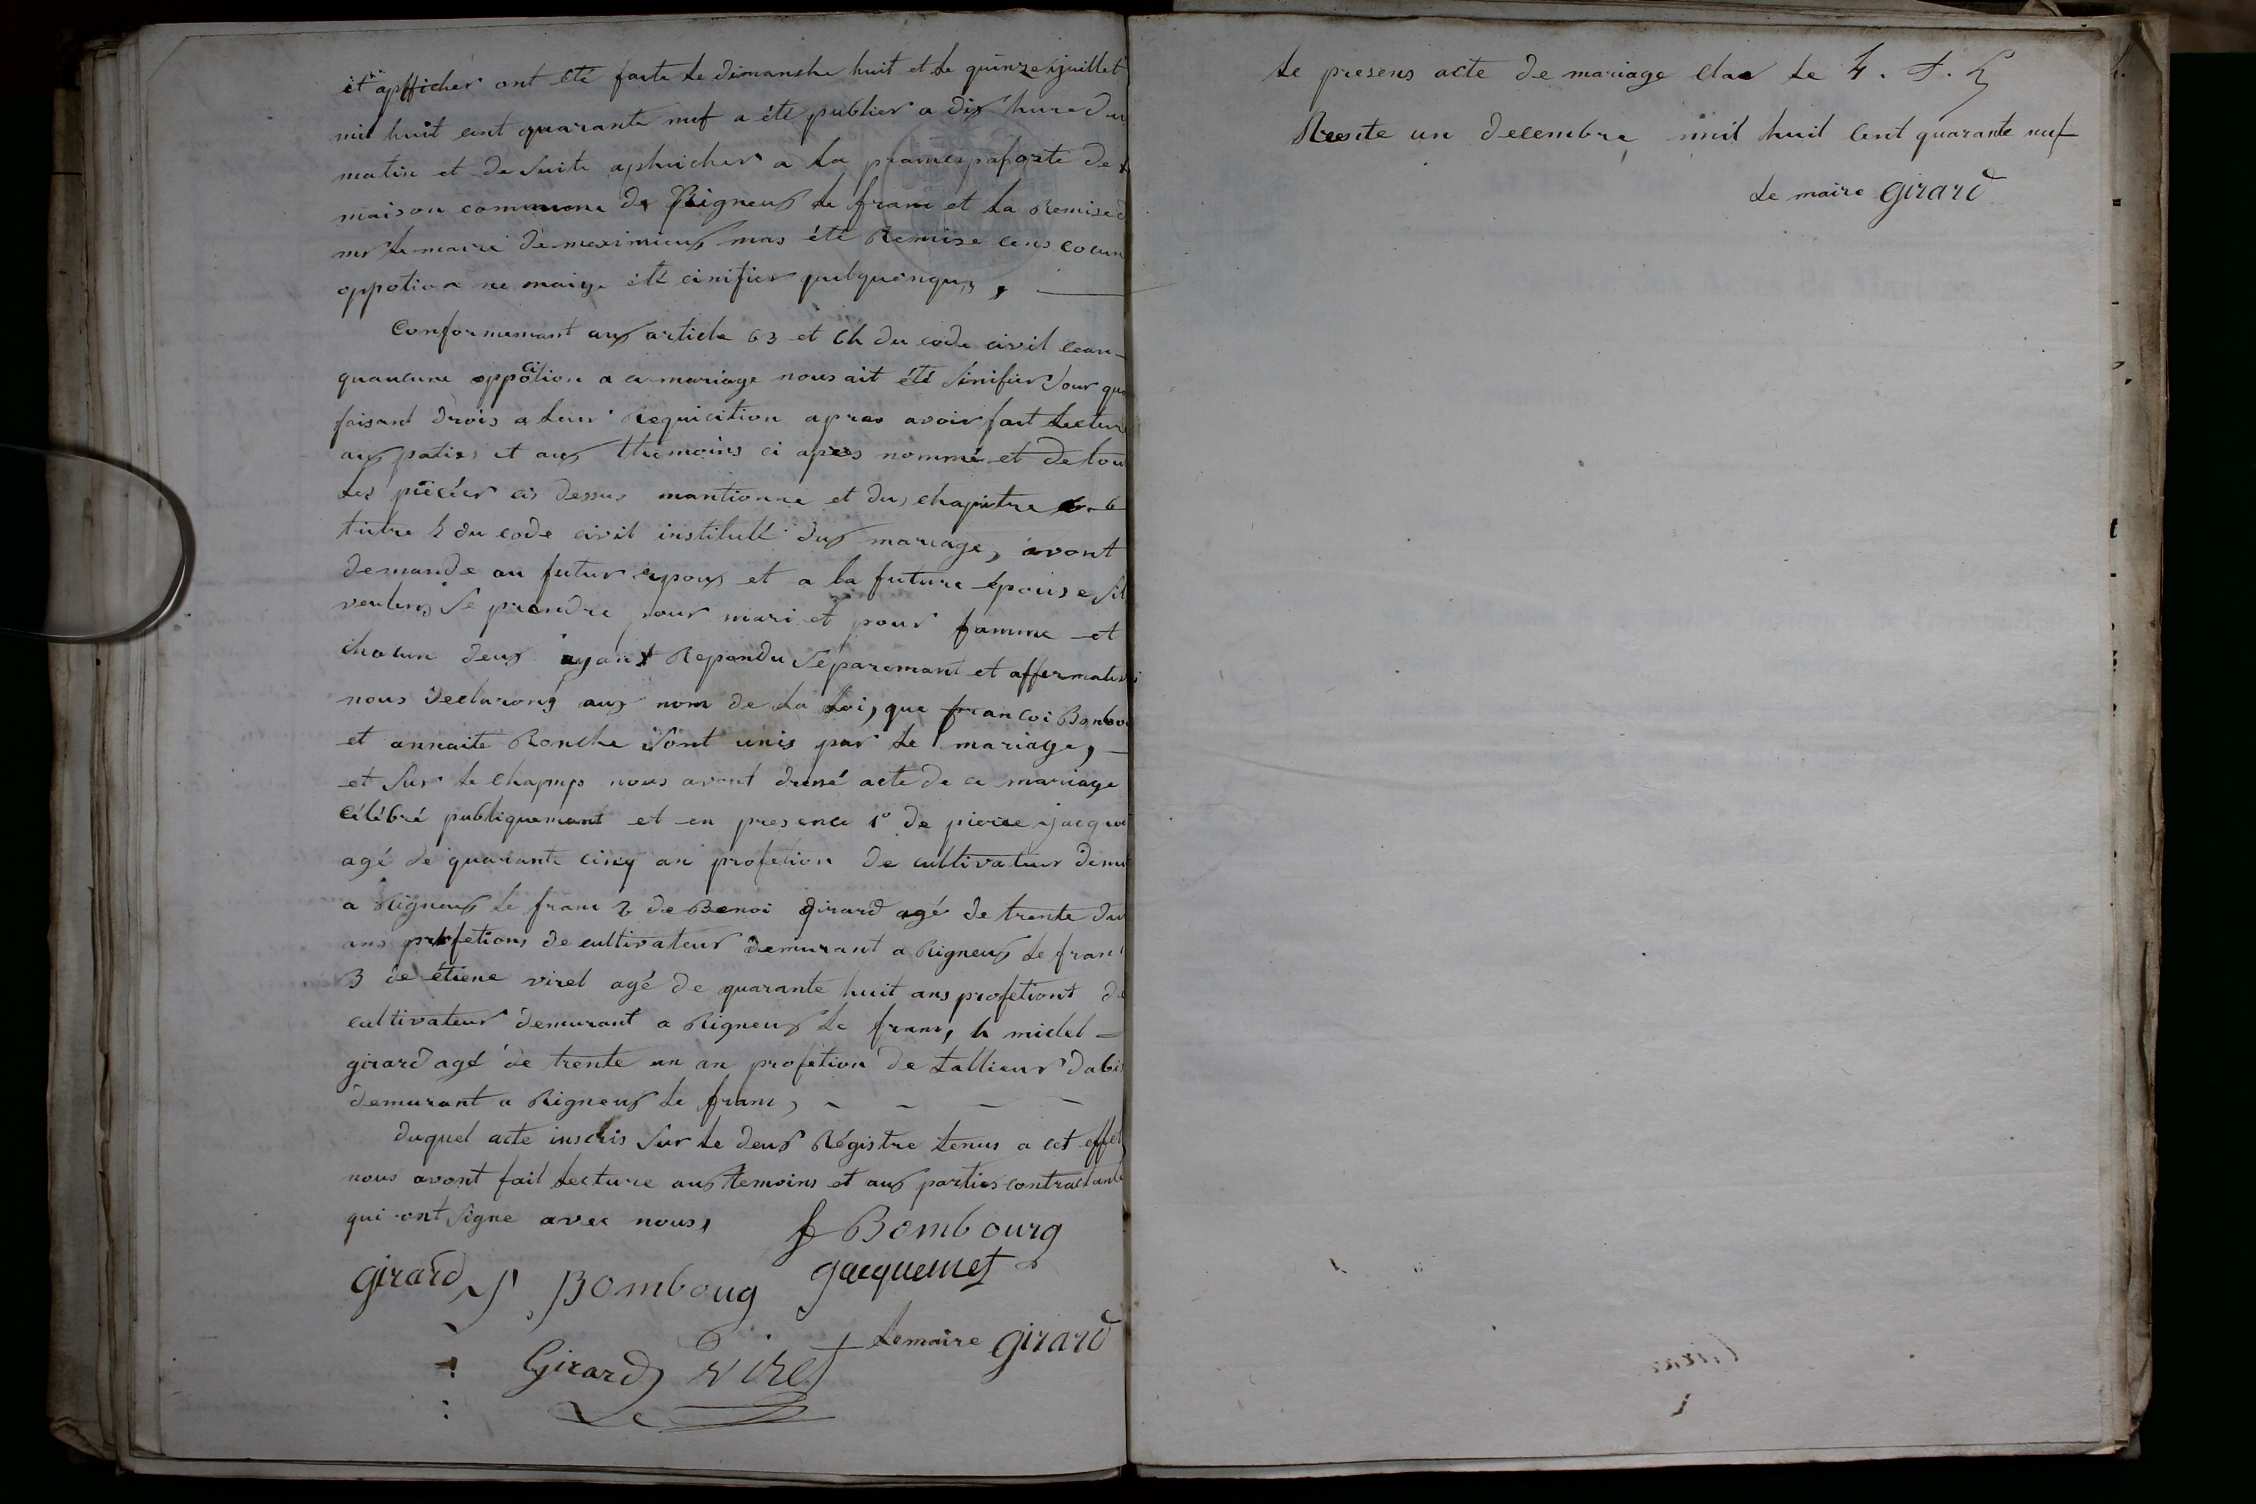 et apfficher ont été faite le dimanshe huit et le quinze juillet
mil huit cent quarante nuf a été publier a dix hure du
matin et de suite aphicher a la porte de
maison commune de Rigneux le franc et la Remise
mr le maire de meximieux mas été Remize cens cocune
oppotion ne maiye été cinifier quelquonque,
Conformemant aux article 63 et 64 du code civil
quaucune oppocition a ce mariage nous ait été sinifier sour que
faisant drois a leur Requicition apres avoir fait lectur
aux paties et aux themoins ci apres nommé et de tou
les piécéer cis dessus mantionne et du chapitre 6
tittre 5 du code civil institulé dux mariage, avont
demande au futur époux et a la future épouse sil
veulens se prandre pour mari et pour famme et
chacune deux ayant Repondu séparemant et affermativ
nous declarons aux nom de la Loi, que francoi Bonbou
et annaite Ronche sont unis par le mariage,
et sur le champs nous avont dressé acte de ce mariage
célébré publiquemant et en presence 1° de pierre jacque
agé de quarante cinq an profetion de cultivateur demu
a Rigneux le franc 2 de Benoi girard agé de trente du
ans profetions de cultivateur demurant a Rigneux le franc
3 de étiene viret agé de quarante huit ans profetiont de
cultivateur demurant a Rigneux le franc, 4 michel
girard agé de trente un an profetion de tallieur dabi
demurant a Rigneux le franc,
duquel acte inscris sur le deux Régistre tenus a cet effet
nous avont fait lecture aux temoins et aux parties contractante
qui ont signe avec nous,
f Bombourg
girard P Bomboug jacquemet
Le maire girard
Girard viret
Le presens acte de mariage clac le 4.
Trente un decembre mil huit cent quarante nuf
Le maire girard